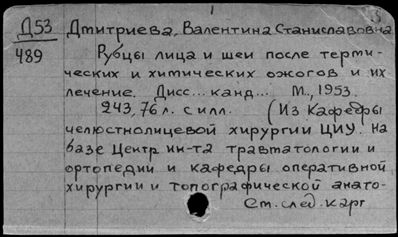 Д53 Дмитриева, Валентина Станиславовна
489 Рубцы лица и шеи после терми-
ческих и химических ожогов и их
лечение. Дисс... канд... М., 1953.
243,76 л. с илл. (Из Кафедры
челюстнолицевой хирургии ЦИУ. на
базе Центр ин-та травматологии и
ортопедии и кафедры оперативной
хирургии и топографической анато-
См. след. карт